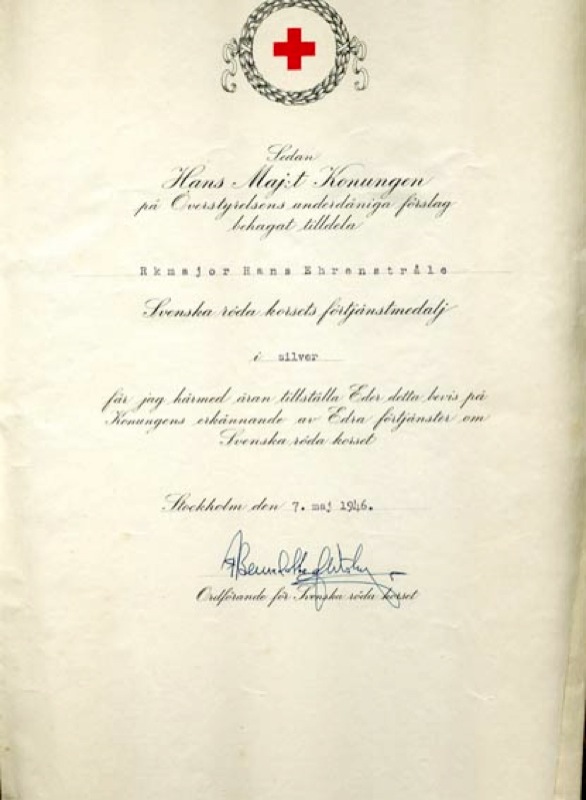 Sedan
Hans Maj:t Konungen
på Överstyrelsens underdåniga förslag
behagat tilldela
Rkmajor Hans Ehrenstråle
Svenska röda korsets förtjänstmedalj
i silver
får jag härmed äran tillställa Eder detta bevis på
Konungens erkännande av Edra förtjänster om
Svenska röda korset
Stockholm den 7. maj 1946.
Ordförande för Svenska röda korset